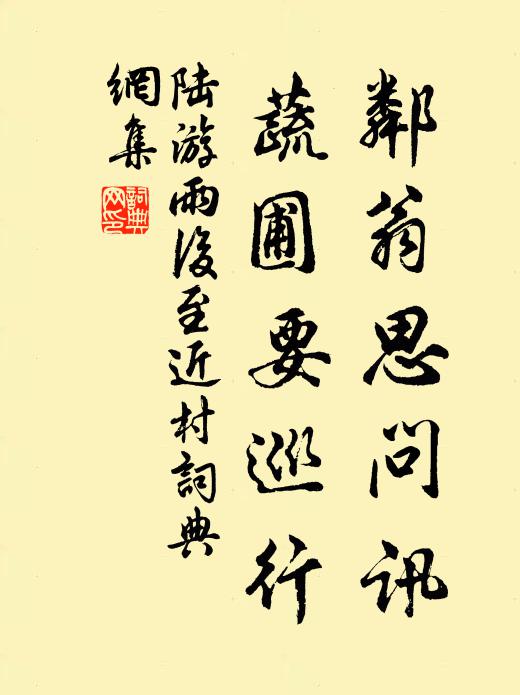 鄰翁思問訊
蔬圃要巡行
陆游雨後至近村詞典
網集
詞典
网印